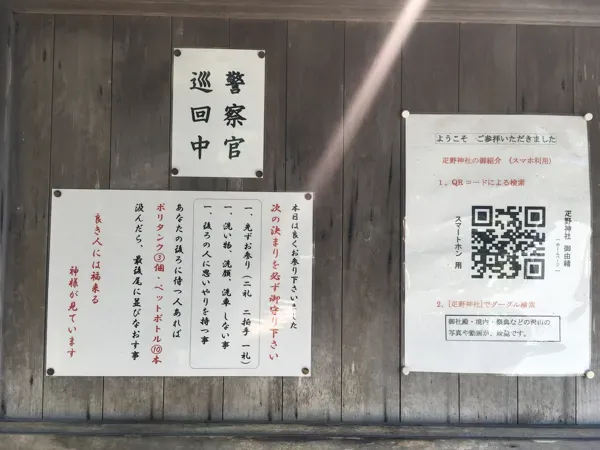 警察官
巡回中
本日は良くお参り下さいました
次の決まりを必ず御守り下さい
一、先ずお参り(二礼 二拍手 一礼)
一、洗い物、洗顔、洗車 しない事
一、後ろの人に思いやりを持つ事
あなたの後ろに侍つ人あれば
ポリタンク③個・ペットボトル⑩本
汲んだら、最後尾に並びなおす事
良き人には福来る
神様が見ています
ようこそ ご参拝いただきました
疋野神社の御紹介 (スマホ利用)
1、QRコードによる検索
疋野神社 御由緒
(ホームページ)
スマートホン 用
2、[疋野神社]でグーグル検索
御社殿・境内・祭典などの沢山の
写真や動画が、